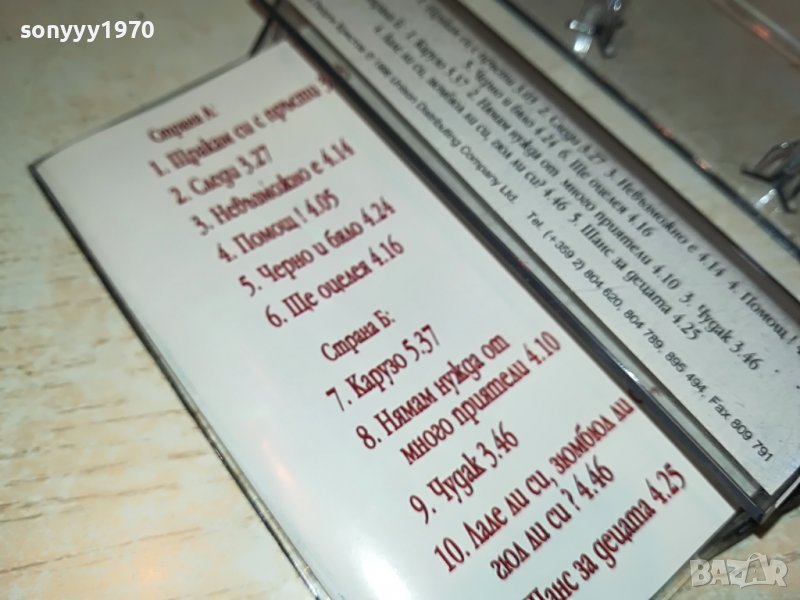 sonyyy1970
Страна А:
1. Тракам си с пръсти 3
2. Следи 3.27
3. Невъзможно е 4.14
4. Помощ! 4.05
5. Черно и бяло 4.24
6. Ще оцелея 4.16
Страна Б:
7. Карузо 5.37
8. Нямам нужда от
много приятели 4.10
9. Чудак 3.46
10. Лале ли си, зюмбюл ли
гюл ли си? 4.46
Шанс за децата 4.25
с пръсти 3.05 2. Следи 3.27 3. Невъзможно е 4.14 4. Помощ! 4
5. Черно и бяло 4.24 6. Ще оцелея 4.16
1. Карузо 5.37 2. Нямам нужда от много приятели 4.10 3. Чудак 3.46
4. Лале ли си, зюмбюл ли си, гюл ли си? 4.46 5. Шанс за децата 4.25
1996 Unison Distributing Company Ltd. Tel. (+359 2) 804 620, 804 789, 895 494, Fax 809 791
BAZAR